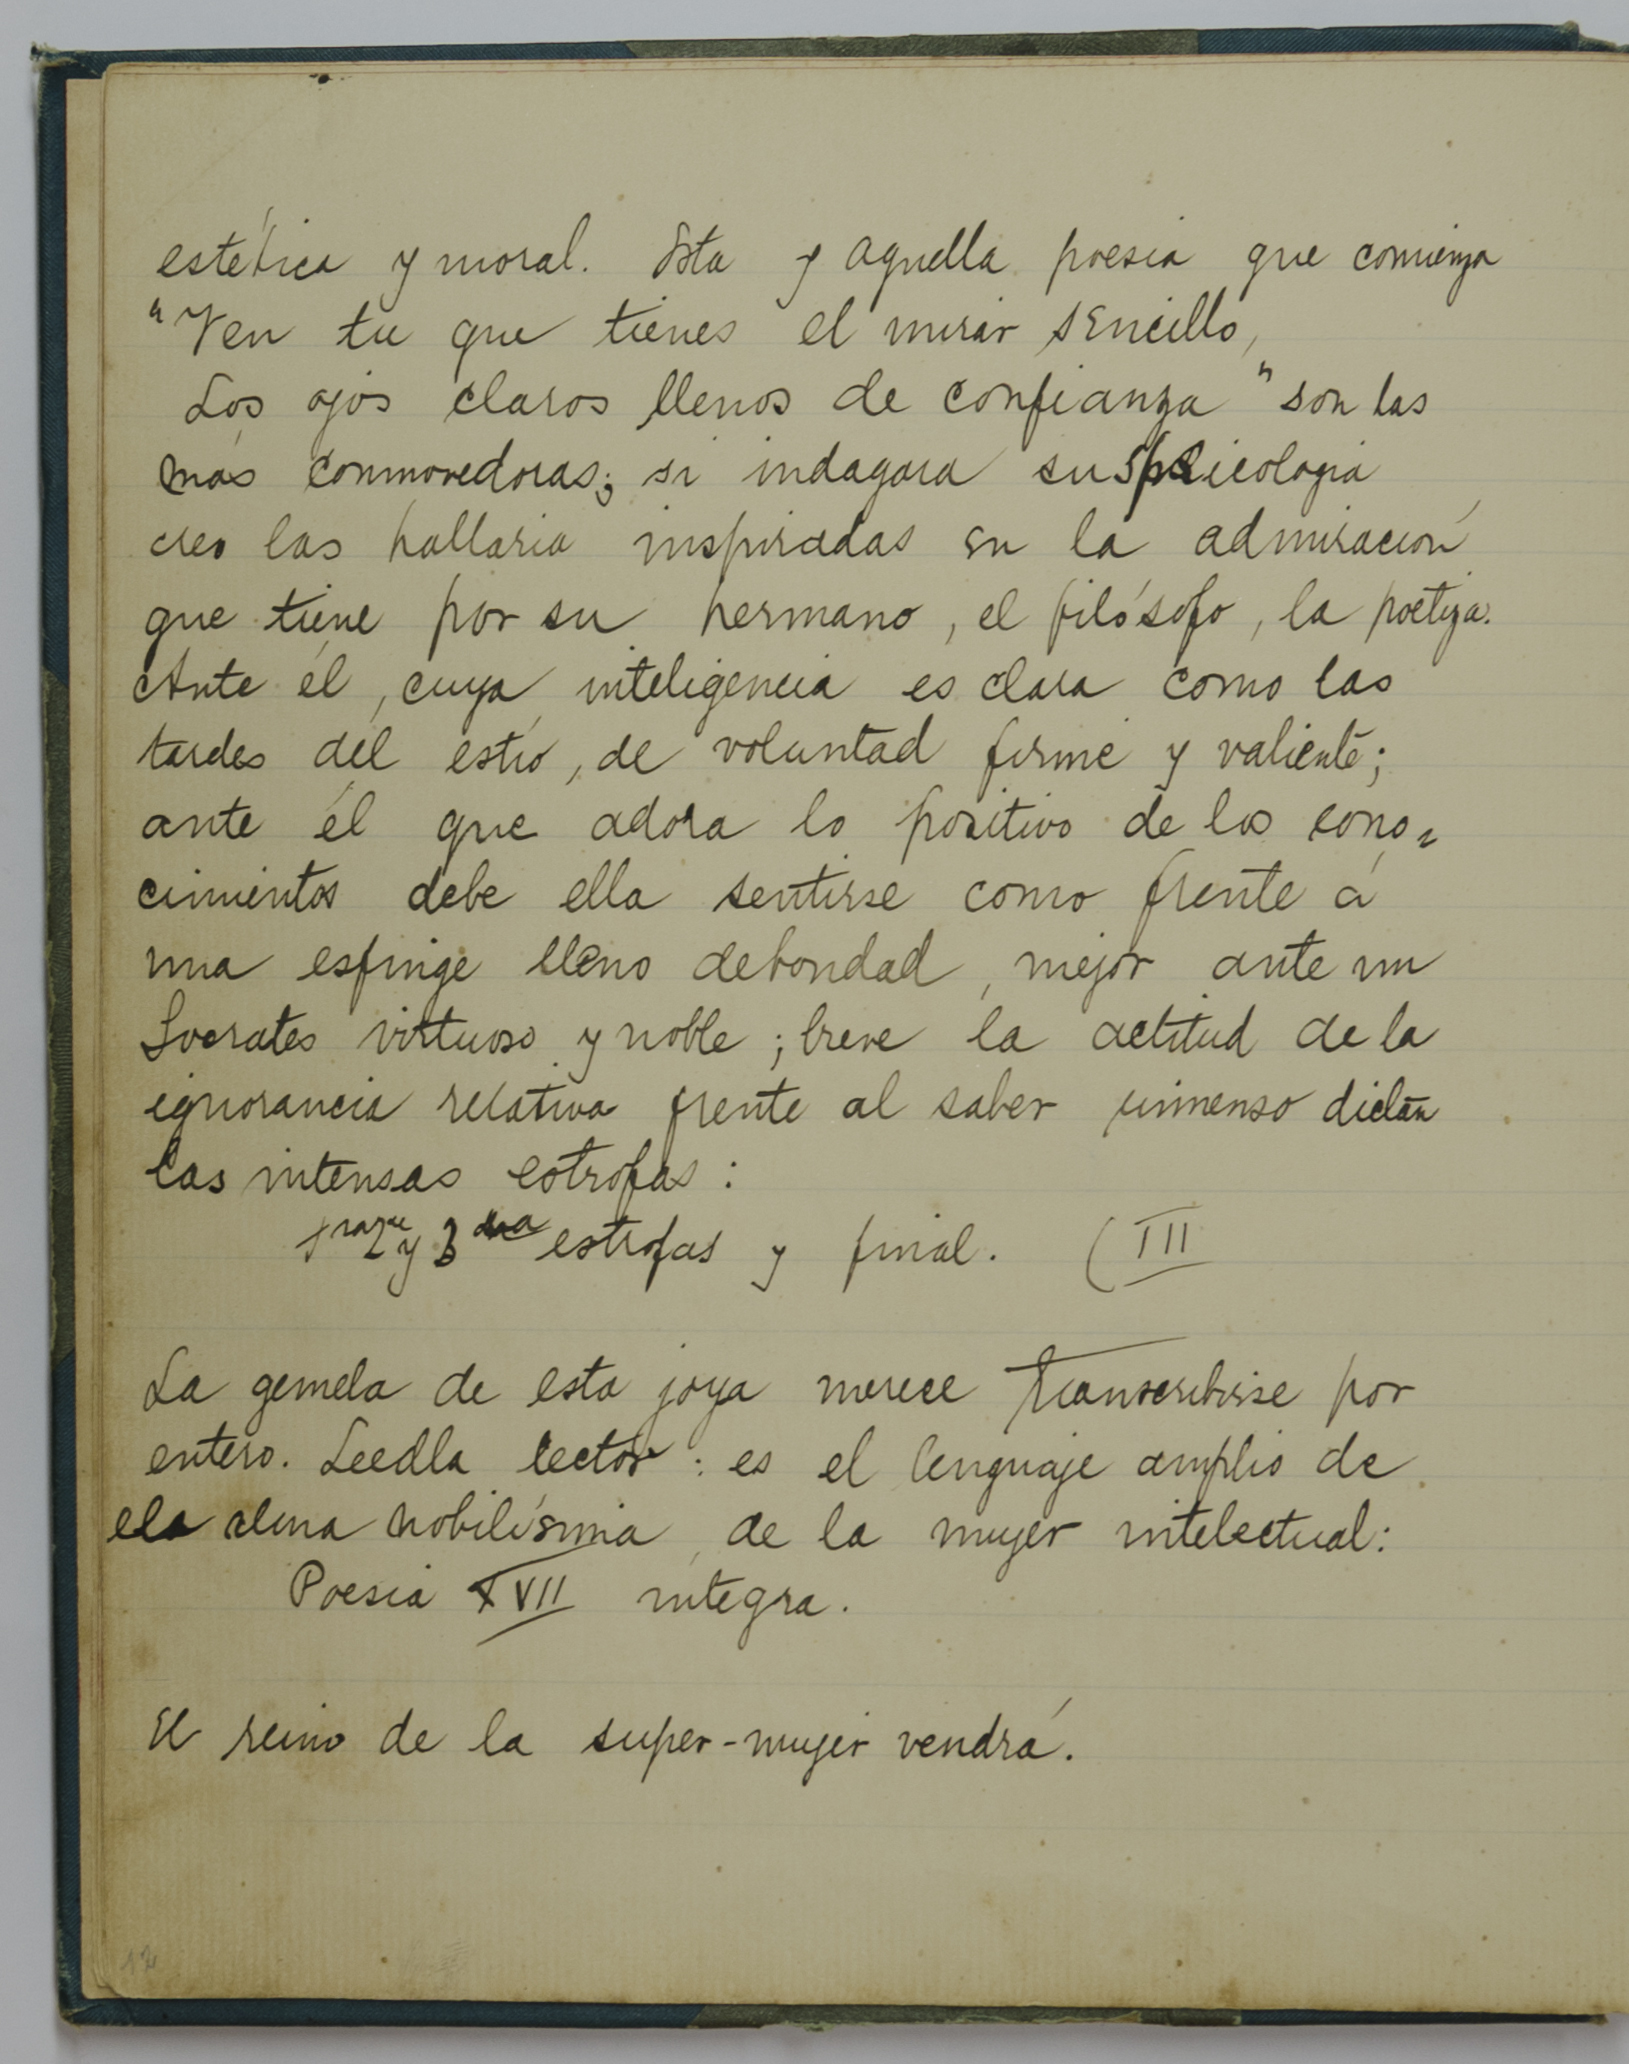 estética y moral. Esta y aquella poesia que comienza
"Ven tu que tienes el mirar sencillo,
Los ojos claros llenos de confianza" son las
más conmovedoras; si indagara su psicologia
creo las hallaria inspiradas en la admiración
que tiene por su hermano, el filósofo, la poetiza.
Ante él, cuya inteligencia es clara como las
tardes del estío, de voluntad firme y valiente;
ante él que adora lo positivo de los cono-
cimientos debe ella sentirse como frente á
una esfinge lleno de bondad, mejor ante un
Socrates virtuoso y noble; breve la actitud de la
ignorancia relativa frente al saber inmenso dictan
las intensas estrofas:
y 3 estrofas y final. (III
La gemela de esta joya merece transcribirse por
entero. Leedla lector: es el lenguaje amplio de
el alma nobilísima, de la mujer intelectual:
Poesia XVII integra.
El reino de la super-mujer vendrá.
12